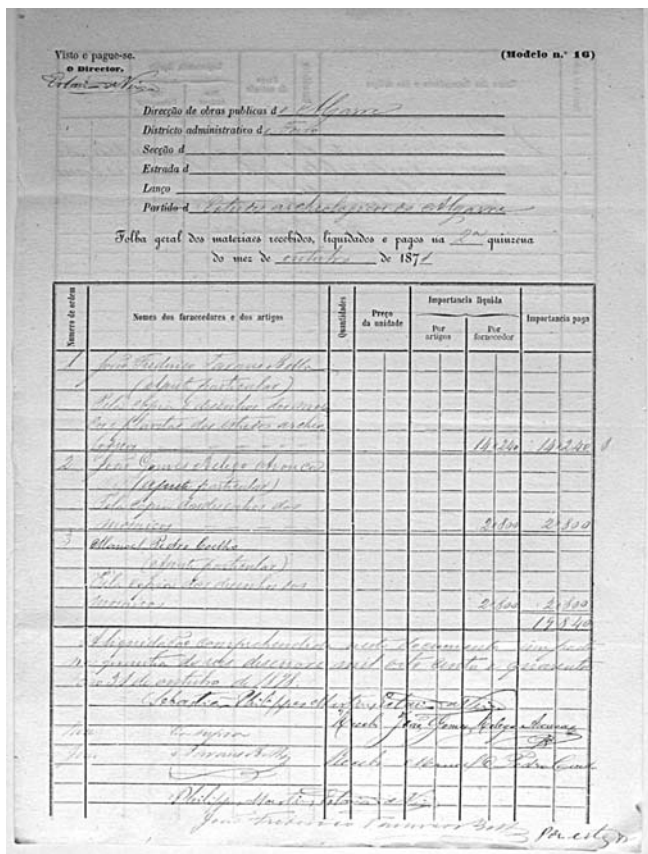 Visto e pague-se.
(Modelo n.º 16)
O Director,
Estacio da Veiga
Direcção de obras publicas de Algarve
Districto administrativo de Faro
Secção d
Estrada d
Lanço
Partido d Estudos archeologicos do Algarve
Folha geral dos materiaes recebidos, liquidados e pagos na 2ª quinzena
do mez de outubro de 187
Numero de ordem
Nomes dos fornecedores e dos artigos
Quantidades
Preço da unidade
Importancia liquida
Por artigos
Por fornecedor
Importancia paga
1 João Frederico Tavares Bello
particular)
Pela copia desenhos
plantas dos estudos archeo
logicos 14:240 14:240
2 João Gomes
particular)
Pela copia dos desenhos dos
mosaicos 2:800 2:800
3 Manoel Pedro Coelho
particular)
Pela copia dos desenhos dos
mosaicos 2:800 2:800
19:840
A liquidação comprehendida neste documento
quantia de réis desenove mil oito centos e quarenta
31 de outubro de
Sebastião Philippes Martins Estacio da Veiga
Recebi João Gomes
Tavares Bello
Recebi Manoel Pedro
Philippes Martins Estacio da Veiga
João Frederico Tavares Bello